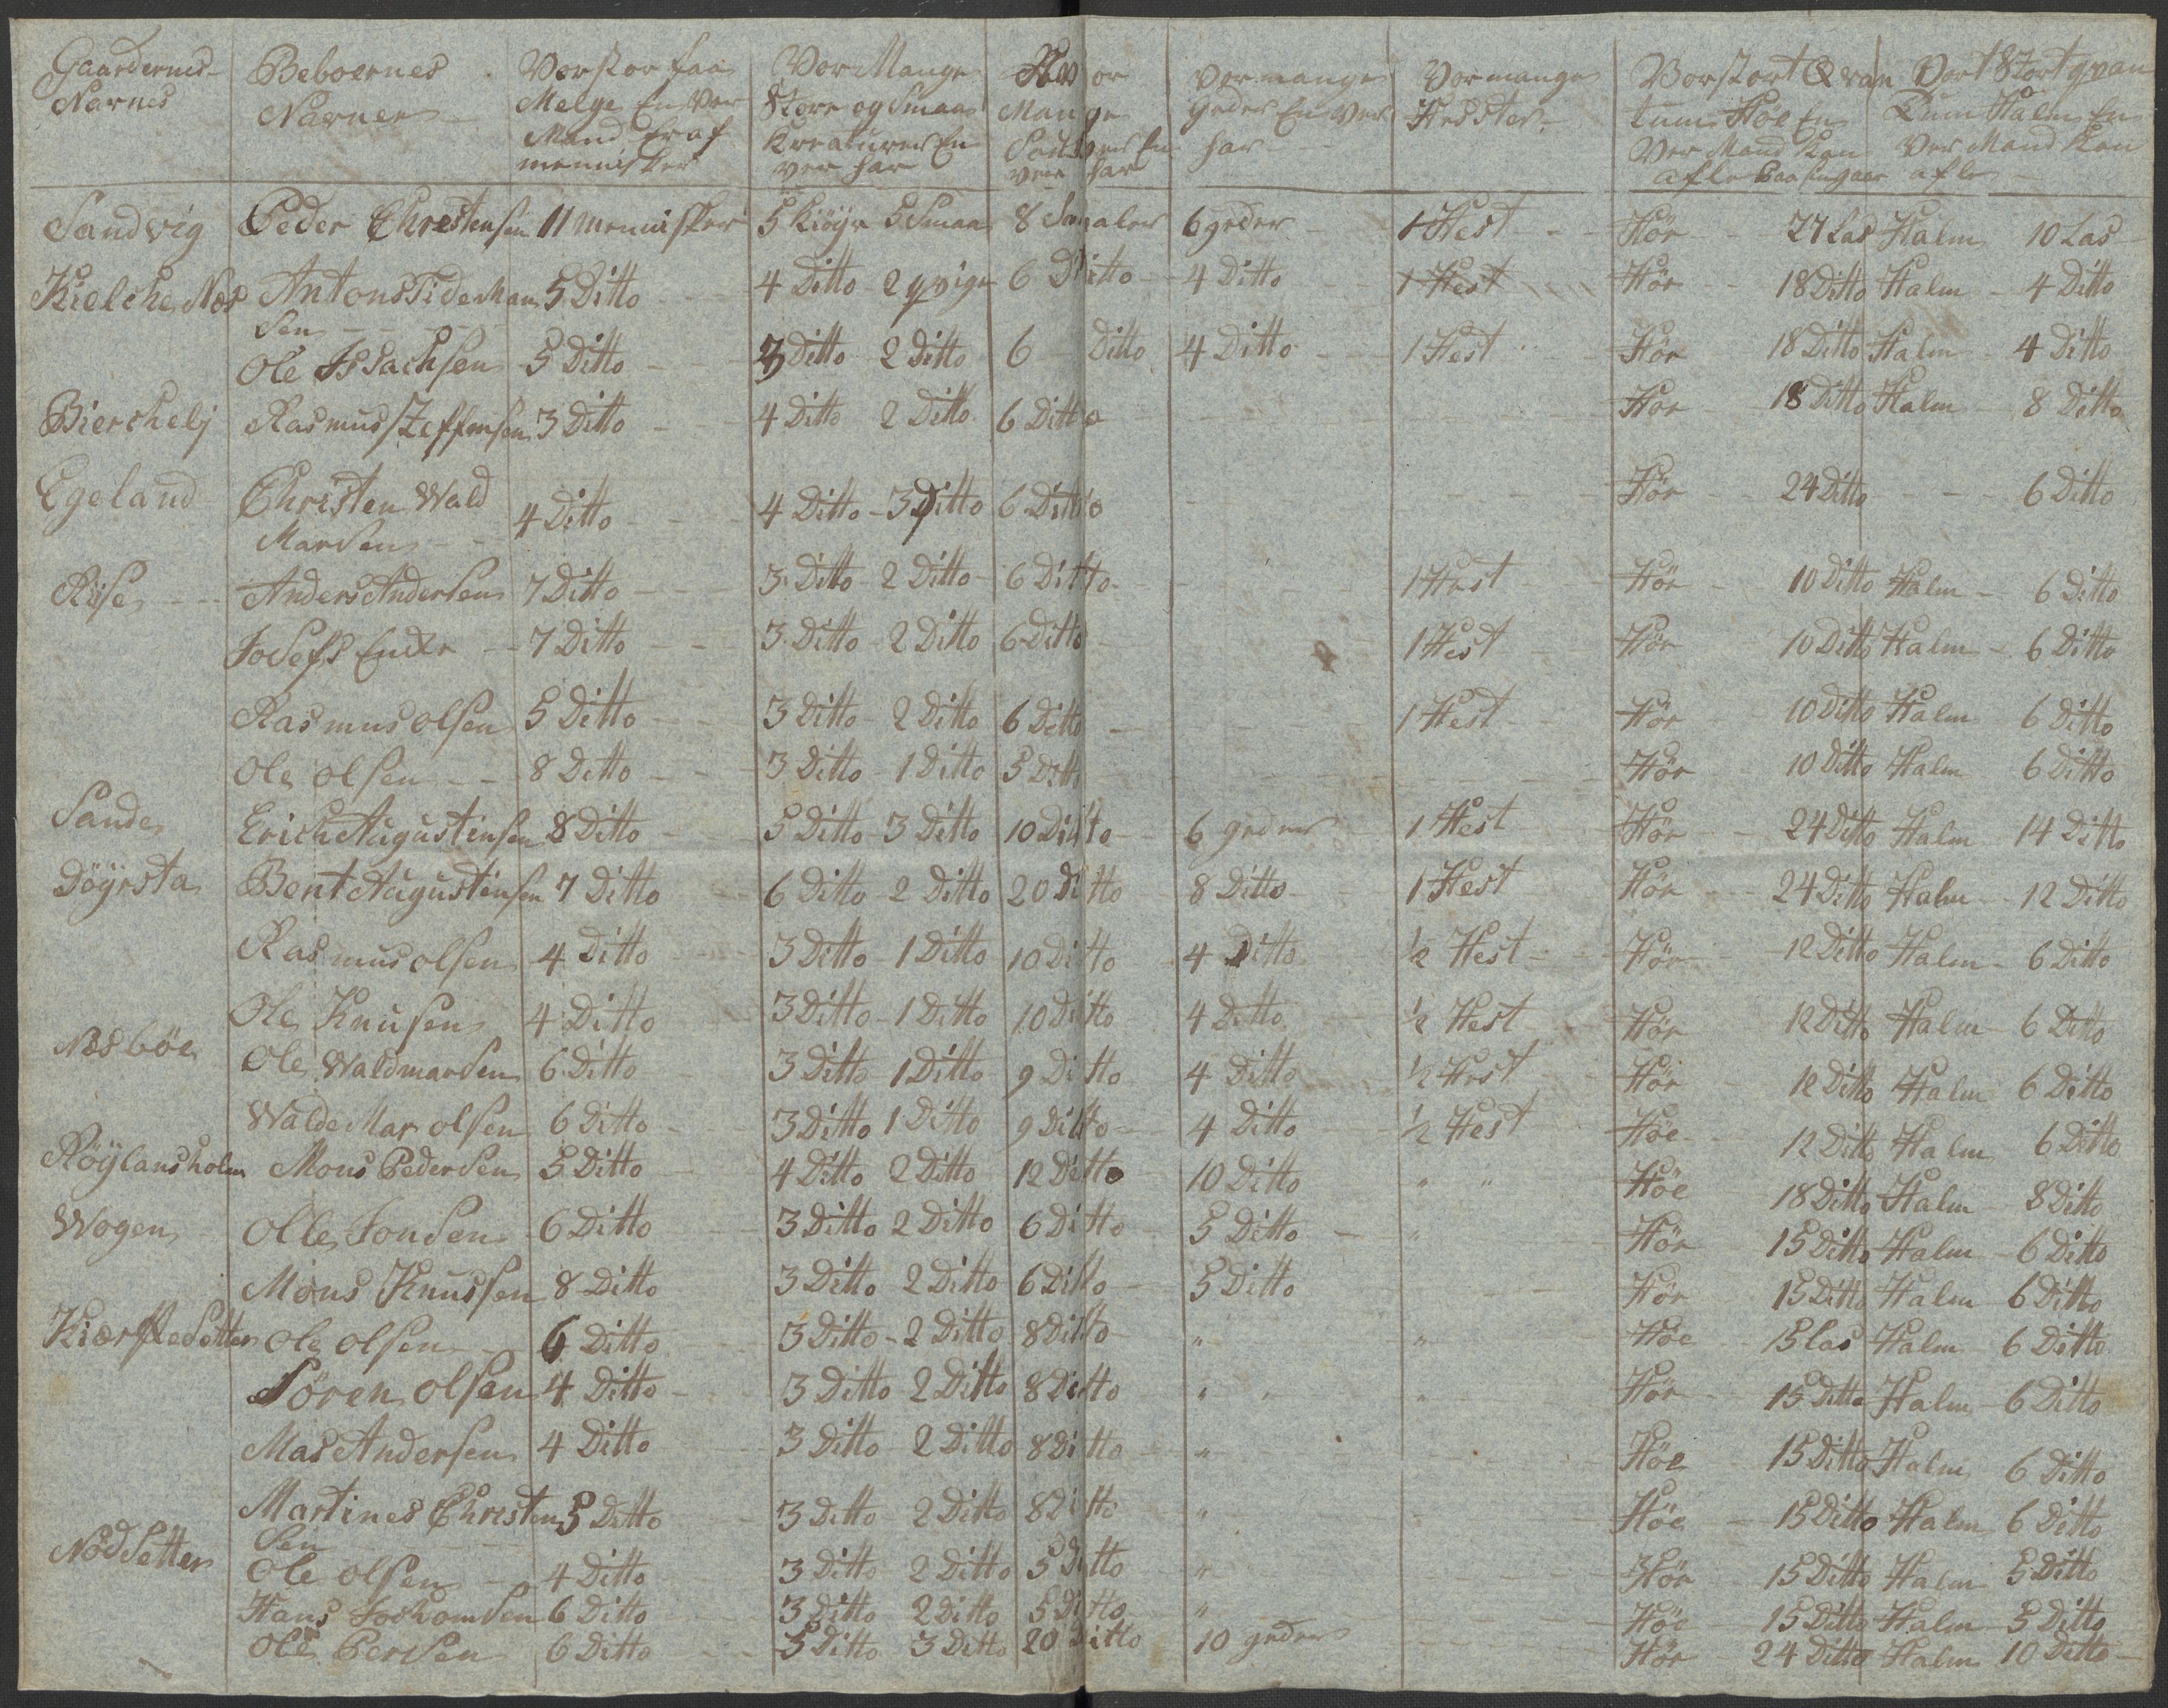 Gaardernes Navnes | Beboernes Navner | Vor stor faa Melge En Ver Mand Er af mennisker | Vor Mange Store og Smaa Kreaturer En ver har | Vor Mange En ver har | Vor mange geder En Ver har | Vor mange Hesster | Vor stort Qvantum Höe En Ver Mand Kan afle | Vort Stort qvantum Halm En Ver Mand Kan afle
Sandvig | Peder Christensen | 11 mennisker | 5 Kiöyr 5 Smaa | 8 | 6 geder | 1 Hest | Hör 24 Las | Halm 10 Las
Kielche Nes | Antons Tideman Sen | 5 Ditto | 4 Ditto 2 qvige | 6 Ditto | 4 Ditto | 1 Hest | Hör 18 Ditto | Halm 4 Ditto
Ole Issachsen | 5 Ditto | 3 Ditto 2 Ditto | 6 Ditto | 4 Ditto | 1 Hest | Hör 18 Ditto | Halm 4 Ditto
Bierchelj | Rasmus Steffensen | 3 Ditto | 4 Ditto 2 Ditto | 6 Ditto | Hör 18 Ditto | Halm 8 Ditto
Egeland | Christen Wald Marsen | 4 Ditto | 4 Ditto 3 Ditto | 6 Ditto | Hör 24 Ditto | 6 Ditto
Riise | Anders Andersen | 7 Ditto | 3 Ditto 2 Ditto | 6 Ditto | 1 Hest | Hör 10 Ditto | Halm 6 Ditto
Josefs Encke | 7 Ditto | 3 Ditto 2 Ditto | 6 Ditto | 1 Hest | Hör 10 Ditto | Halm 6 Ditto
Rasmus olsen | 5 Ditto | 3 Ditto 2 Ditto | 6 Ditto | 1 Hest | Hör 10 Ditto | Halm 6 Ditto
Ole olsen | 8 Ditto | 3 Ditto 1 Ditto | 5 Ditto | Hör 10 Ditto | Halm 6 Ditto
Sande | Erich Augustinsen | 8 Ditto | 5 Ditto 3 Ditto | 10 Ditto | 6 geder | 1 Hest | Hör 24 Ditto | Halm 14 Ditto
Döyrsta | Bent Augustinsen | 7 Ditto | 6 Ditto 2 Ditto | 20 Ditto | 8 Ditto | 1 Hest | Hör 24 Ditto | Halm 12 Ditto
Rasmus olsen | 4 Ditto | 3 Ditto 1 Ditto | 10 Ditto | 4 Ditto | ½ Hest | Hör 12 Ditto | Halm 6 Ditto
Ole Knusen | 4 Ditto | 3 Ditto 1 Ditto | 10 Ditto | 4 Ditto | ½ Hest | Hör 12 Ditto | Halm 6 Ditto
Nesböe | Ole Waldmarsen | 6 Ditto | 3 Ditto 1 Ditto | 9 Ditto | 4 Ditto | ½ Hest | Hör 12 Ditto | Halm 6 Ditto
Walde Mar olsen | 6 Ditto | 3 Ditto 1 Ditto | 9 Ditto | 4 Ditto | ½ Hest | Höe 12 Ditto | Halm 6 Ditto
Röylansholm | Mons Pedersen | 5 Ditto | 4 Ditto 2 Ditto | 12 Ditto | 10 Ditto | " " | Höe 18 Ditto | Halm 8 Ditto
Wogen | Olle Jonsen | 6 Ditto | 3 Ditto 2 Ditto | 6 Ditto | 5 Ditto | " | Hör 15 Ditto | Halm 6 Ditto
Mons Knussen | 8 Ditto | 3 Ditto 2 Ditto | 6 Ditto | 5 Ditto | Hör 15 Ditto | Halm 6 Ditto
Kierstesetter | Ole olsen | 6 Ditto | 3 Ditto 2 Ditto | 8 Ditto | " | " | Höe 15 Las | Halm 6 Ditto
Sören olsen | 4 Ditto | 3 Ditto 2 Ditto | 8 Ditto | " | " | Hör 15 Ditto | Halm 6 Ditto
Mas Andersen | 4 Ditto | 3 Ditto 2 Ditto | 8 Ditto | " | Höe 15 Ditto | Halm 6 Ditto
Martines Christen Sen | 5 Ditto | 3 Ditto 2 Ditto | 8 Ditto | " | Höe 15 Ditto | Halm 6 Ditto
Nodsetter | Ole olsen | 4 Ditto | 3 Ditto 2 Ditto | 5 Ditto | " | Hör 15 Ditto | Halm 5 Ditto
Hans Jochomsen | 6 Ditto | 3 Ditto 2 Ditto | 5 Ditto | " | Höe 15 Ditto | Halm 5 Ditto
Ole Persen | 6 Ditto | 5 Ditto 3 Ditto | 20 Ditto | 10 geder | Hör 24 Ditto | Halm 10 Ditto